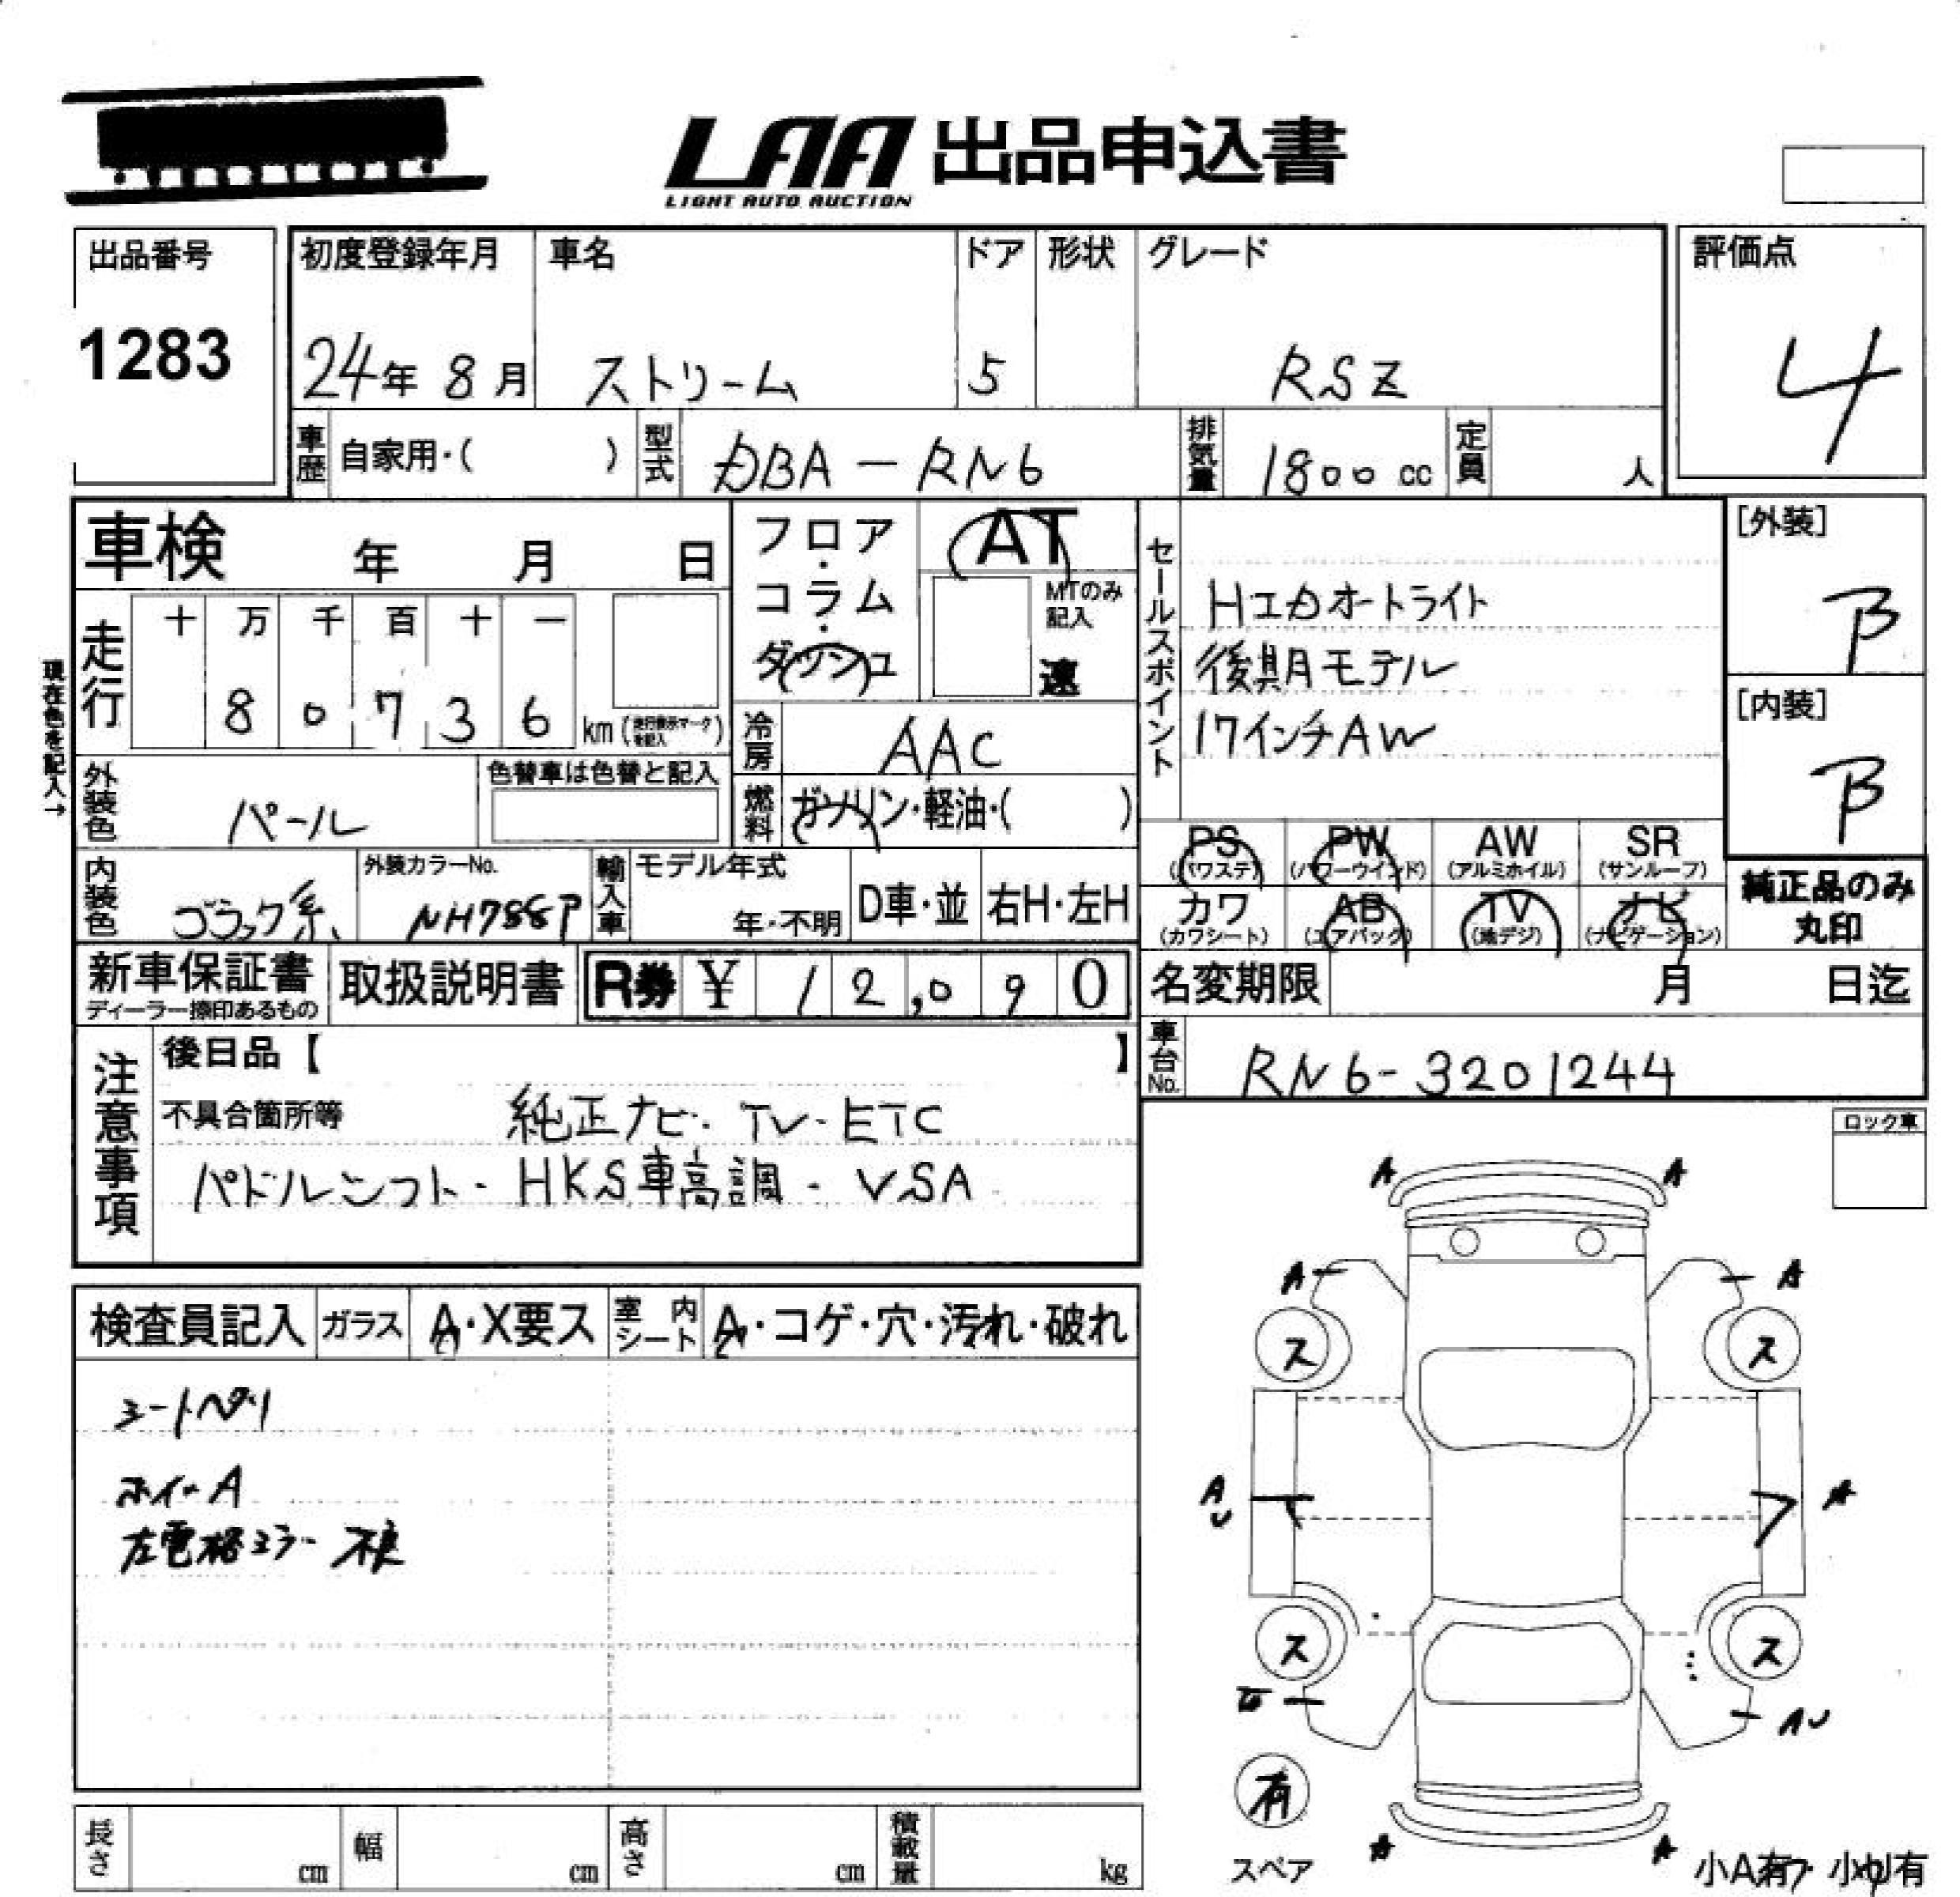 LAA 出品申込書
LIGHT AUTO AUCTION
出品番号
1283
初度登録年月
24年 8月
車名
ストリーム
ドア
5
形状
グレード
RSZ
評価点
4
車歴 自家用・( )
型式 DBA-RN6
排気量 1800 cc
定員 人
車検 年 月 日
走行 十 万 千 百 十 一
8 0 7 3 6 km (走行表示マークを記入)
現在色を記入→
外装色 パール
色替車は色替と記入
内装色 ブラック系
外装カラーNo.
NH788P
輸入車 モデル年式
年・不明
D車・並
右H・左H
フロア・コラム・ダッシュ
AT
MTのみ記入
速
冷房 AAC
燃料 ガソリン・軽油・( )
セールスポイント
HIDオートライト
後期モデル
17インチAW
[外装]
B
[内装]
B
PS (パワステ)
PW (パワーウインド)
AW (アルミホイル)
SR (サンルーフ)
カワ (カワシート)
AB (エアバック)
TV (地デジ)
ナビ (ナビゲーション)
純正品のみ丸印
新車保証書
ディーラー捺印あるもの
取扱説明書
R券 ¥ 12,090
名変期限 月 日迄
車台No. RN6-3201244
注意事項
後日品【 】
不具合箇所等 純正ナビ・TV・ETC
パドルシフト・HKS車高調・VSA
ロック車
検査員記入
ガラス A・X要ス
室内シート A・コゲ・穴・汚れ・破れ
シートヘタリ
ホイールA
左電格ミラー不良
A A
A A
ス ス
A
U
A
ス ス
AU
有
スペア
A A
小A有 小U有
長さ cm
幅 cm
高さ cm
積載量 kg